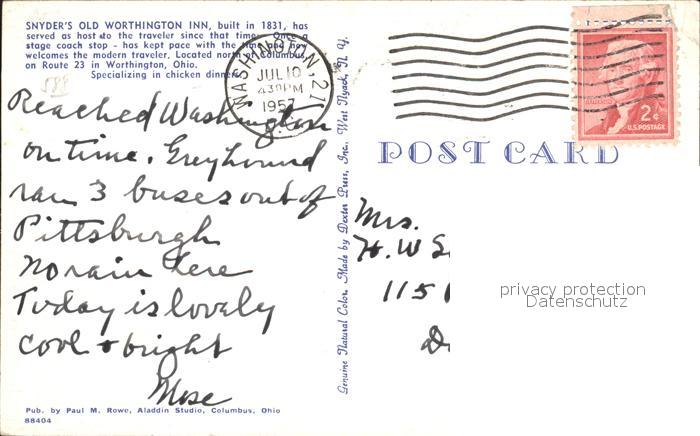 SNYDER'S OLD WORTHINGTON INN, built in 1831, has
served as host to the traveler since that time. Once a
stage coach stop - has kept pace with the time and now
welcomes the modern traveler. Located north of Columbus
on Route 23 in Worthington, Ohio.
Specializing in chicken dinners
Reached Washington
on time. Greyhound
ran 3 buses out of
Pittsburgh
No rain here
Today is lovely
cool + bright
Mose
Pub. by Paul M. Rowe, Aladdin Studio, Columbus, Ohio
88404
Genuine Natural Color. Made by Dexter Press, Inc., West Nyack, N. Y.
WASHINGTON, 21
JUL 10
430PM
1957
2¢
U.S. POSTAGE
POST CARD
Mrs.
H. W S
115
privacy protection
Datenschutz